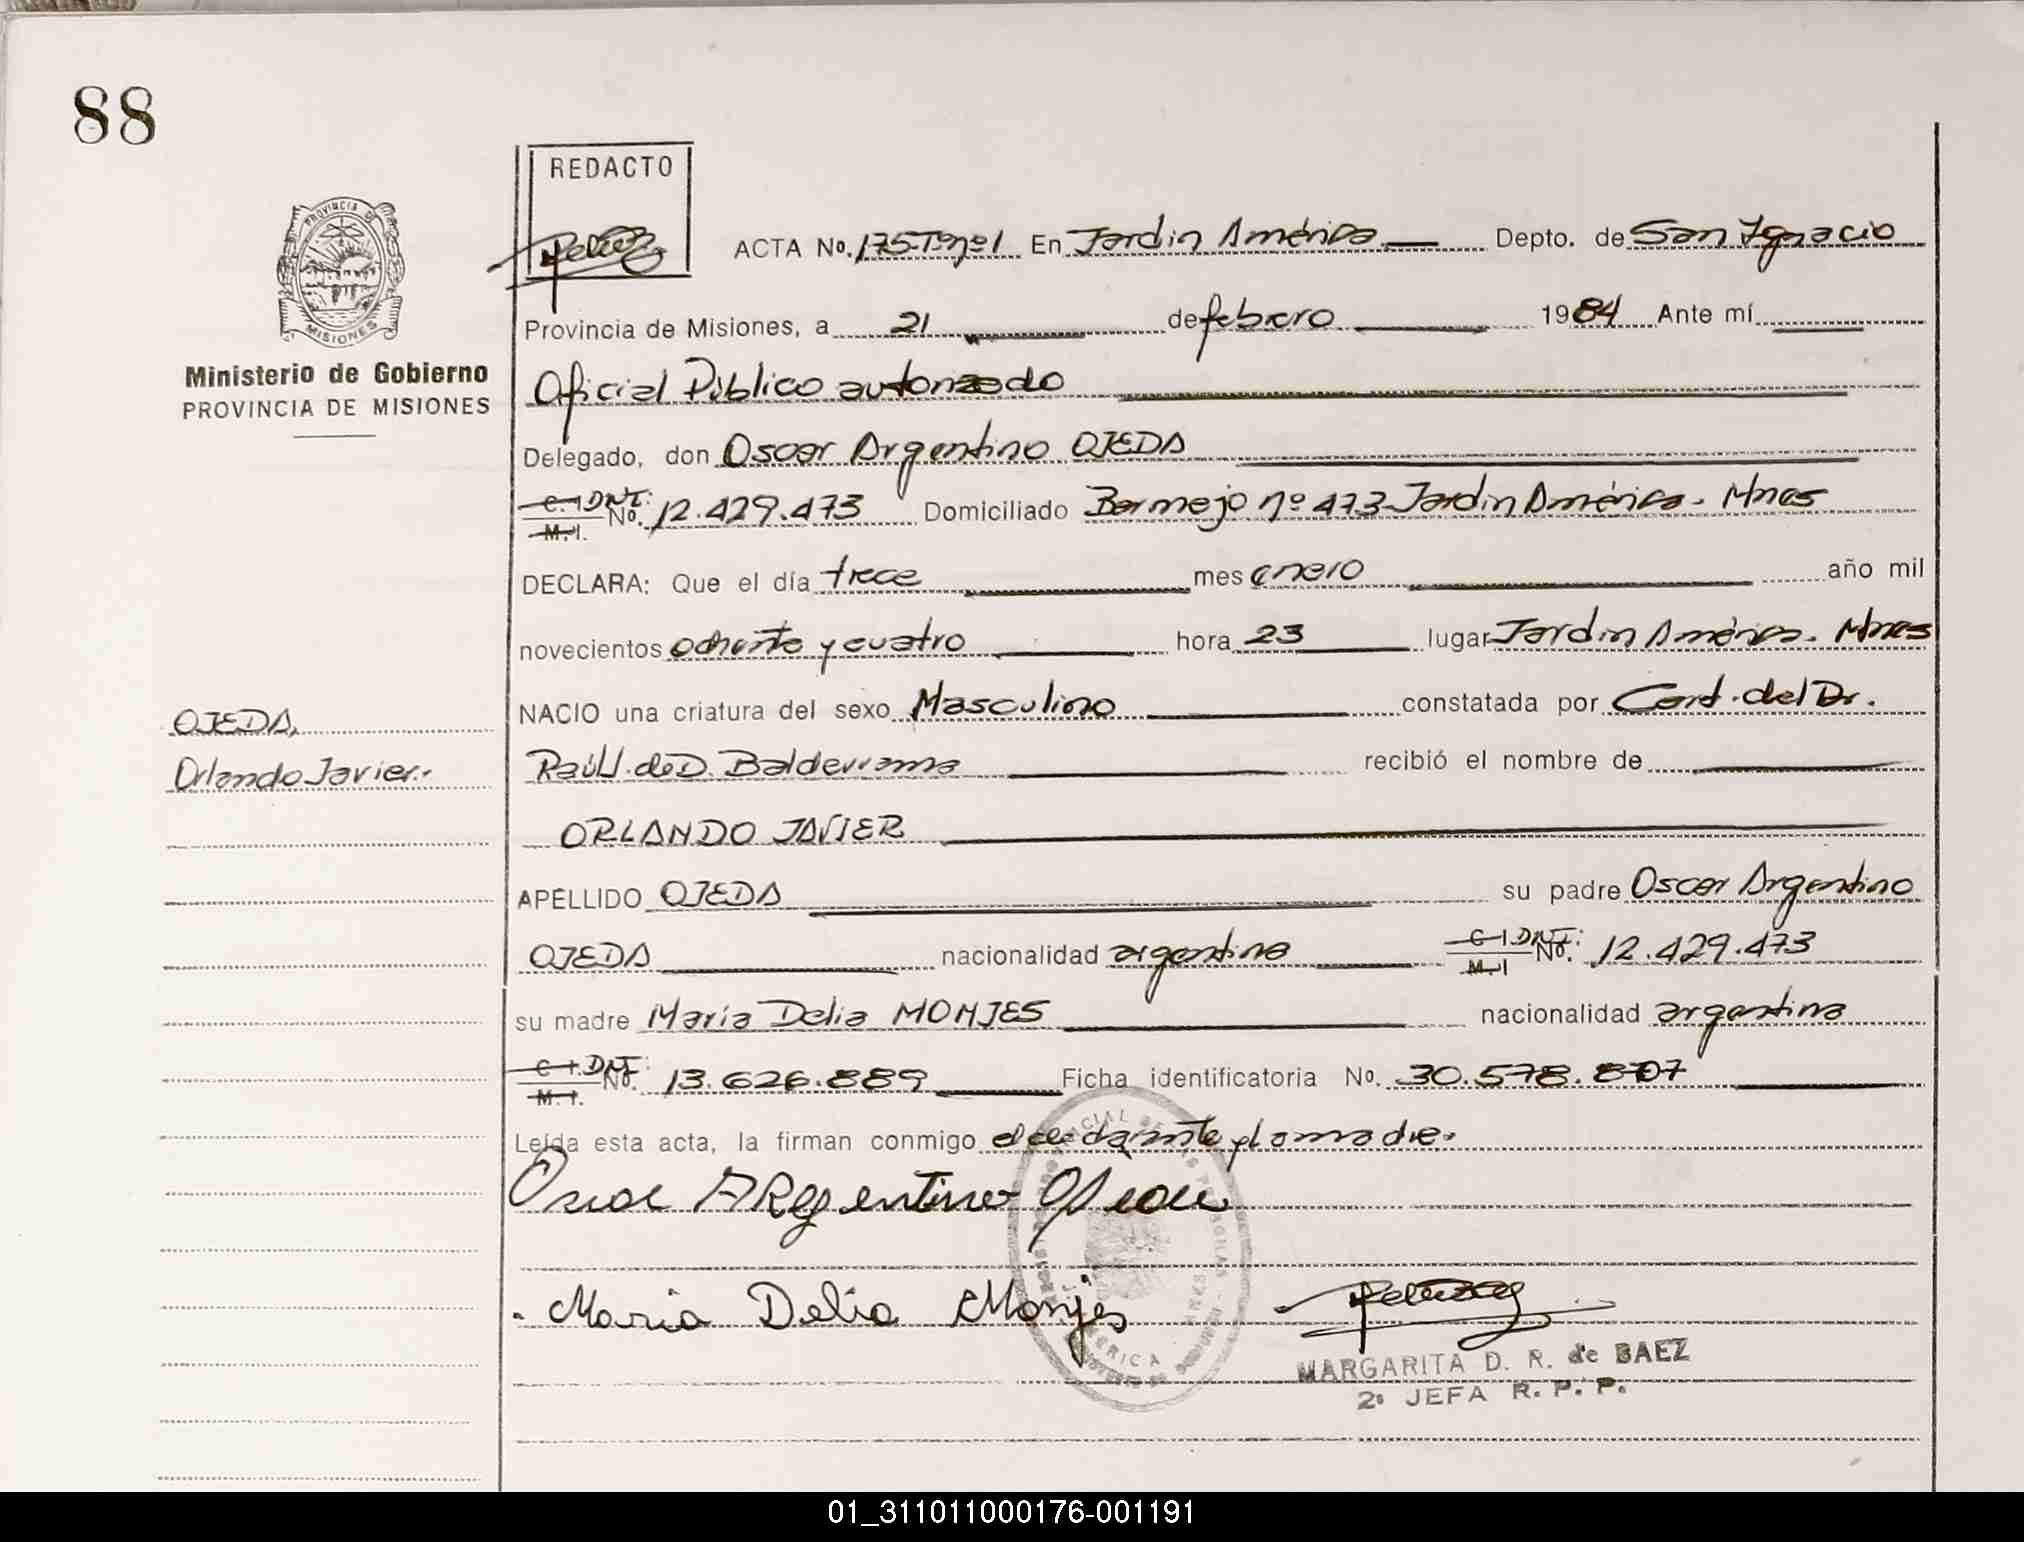 88
REDACTO
PROVINCIA DE
MISIONES
Ministerio de Gobierno
PROVINCIA DE MISIONES
ACTA No. 175-Tºnº1 En Jardin América Depto. de San Ignacio
Provincia de Misiones, a 21 de febrero 1984 Ante mí
Oficial Público autorizado
Delegado, don Oscar Argentino OJEDA
C.I. DNI: M.I. No. 12.429.473 Domiciliado Bermejo nº 473-Jardin América. Mnes
DECLARA: Que el día trece mes enero año mil
novecientos ochenta y cuatro hora 23 lugar Jardin América. Mnes
NACIO una criatura del sexo Masculino constatada por Cert. del Dr.
Raúl J. de D. Balderrama recibió el nombre de
ORLANDO JAVIER
APELLIDO OJEDA su padre Oscar Argentino
OJEDA nacionalidad argentina C.I DNI: M.I No. 12.429.473
su madre María Delia MONJES nacionalidad argentina
C.I. DNI: M.I. No. 13.626.889 Ficha identificatoria No. 30.578.807
Leída esta acta, la firman conmigo el declarante y la madre.
Oscar Argentino Ojeda
Maria Delia Monjes
MARGARITA D. R. de BAEZ
2º JEFA R. P. P.
OJEDA,
Orlando Javier.
01_311011000176-001191